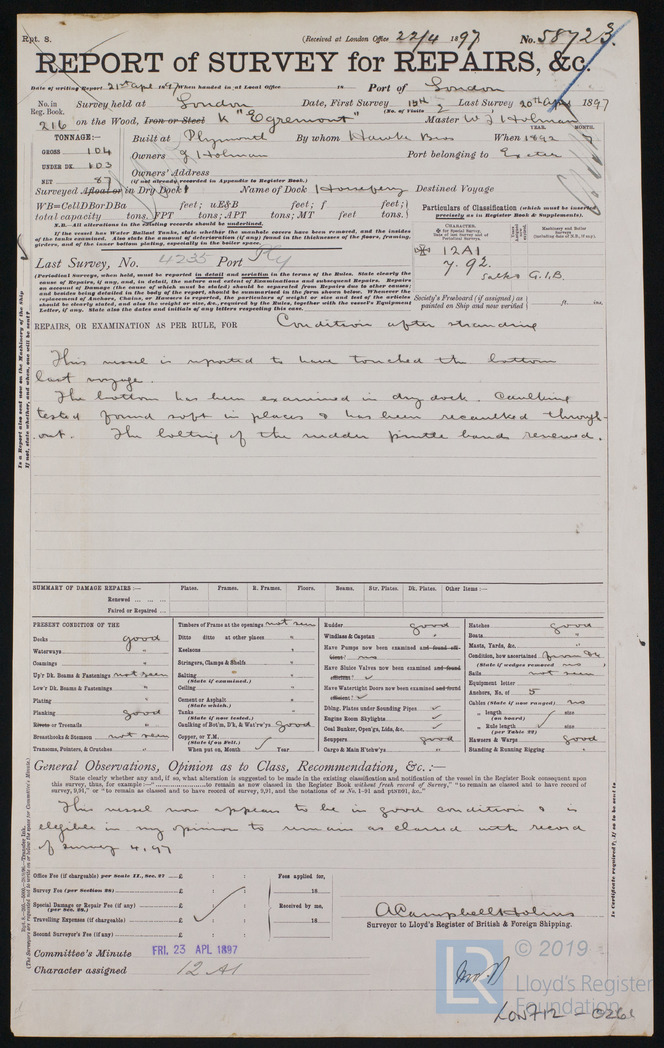 Rpt. 8.
(Received at London Office 22/4 1897
No. 58723.
REPORT of SURVEY for REPAIRS, &c.
Date of writing Report 21st Apl 1897 When handed in at Local Office 18 Port of London
No. in Reg. Book. Survey held at London Date, First Survey 15th Last Survey 20th Apl 1897
(No. of Visits 2
216 on the Wood, Iron or Steel K "Egremont" Master W J Holman
TONNAGE:— Built at Plymouth By whom Hawke Bros When 1892 7
YEAR. MONTH.
GROSS 104 Owners J Holman Port belonging to Exeter
UNDER DK. 103 Owners' Address
(If not already recorded in Appendix to Register Book.)
NET 87
Surveyed Afloat or in Dry Dock? Name of Dock Horseferry Destined Voyage
WB=CellDBorDBa feet; uE&B feet; f feet;
total capacity tons. FPT tons; APT tons; MT feet tons.
Particulars of Classification (which must be inserted precisely as in Register Book & Supplements).
N.B.—All alterations in the existing records should be underlined.
If the vessel has Water Ballast Tanks, state whether the manhole covers have been removed, and the insides
of the tanks examined. Also state the amount of deterioration (if any) found in the thicknesses of the floors, framing,
girders, and of the inner bottom plating, especially in the boiler space.
12A1
7.92.
Salted G.I.B.
Last Survey, No. 4235 Port Ply
(Periodical Surveys, when held, must be reported in detail and seriatim in the terms of the Rules. State clearly the
cause of Repairs, if any, and, in detail, the nature and extent of Examinations and subsequent Repairs. Repairs
on account of Damage (the cause of which must be stated) should be separated from Repairs due to other causes;
and besides being detailed in the body of the report, should be summarised in the form shown below. Whenever the
replacement of Anchors, Chains, or Hawsers is reported, the particulars of weight or size and test of the articles
should be clearly stated, and also the weight or size, &c., required by the Rules, together with the vessel's Equipment
Letter, if any. State also the dates and initials of any letters respecting this case.
Society's Freeboard (if assigned) as painted on Ship and now verified ft. ins.
REPAIRS, OR EXAMINATION AS PER RULE, FOR Condition after stranding
This vessel is reported to have touched the bottom
last voyage.
The bottom has been examined in dry dock. Caulking
tested found soft in places & has been recaulked through-
out. The bolting of the rudder pintle bands renewed.
SUMMARY OF DAMAGE REPAIRS:— Plates. Frames. R. Frames. Floors. Beams. Str. Plates. Dk. Plates. Other Items:—
Renewed ... ... ...
Faired or Repaired ...
PRESENT CONDITION OF THE
Decks good
Waterways "
Coamings "
Up'r Dk. Beams & Fastenings not seen
Low'r Dk. Beams & Fastenings "
Plating "
Planking good
Rivets or Treenails "
Breasthooks & Stemson not seen
Transoms, Pointers, & Crutches "
Timbers of Frame at the openings not seen
Ditto ditto at other places "
Keelsons "
Stringers, Clamps & Shelfs "
Salting "
(State if examined.)
Ceiling "
Cement or Asphalt
(State which.)
Tanks
(State if now tested.)
Caulking of Bot'm, D'k, & Wat'rw'ys good
Copper, or Y.M.
(State if on Felt.)
When put on, Month Year
Rudder good
Windlass & Capstan "
Have Pumps now been examined and found efficient? no
Have Sluice Valves now been examined and found efficient?
Have Watertight Doors now been examined and found efficient?
Dblng. Plates under Sounding Pipes
Engine Room Skylights
Coal Bunker, Open'gs, Lids, &c.
Scuppers good
Cargo & Main H'tchw'ys "
Hatches good
Boats "
Masts, Yards, &c. "
Condition, how ascertained from dk
(State if wedges removed no )
Sails not seen
Equipment letter
Anchors, No. of 5
Cables (State if now ranged) no
" length size
(on board)
" Rule length size
(per Table 22)
Hawsers & Warps good
Standing & Running Rigging "
General Observations, Opinion as to Class, Recommendation, &c. :—
State clearly whether any and, if so, what alteration is suggested to be made in the existing classification and notification of the vessel in the Register Book consequent upon
This vessel now appears to be in good condition & is
eligible in my opinion to remain as classed with record
of survey 4,97
Office Fee (if chargeable) per Scale II., Sec. 27 ... £ : : Fees applied for,
Survey Fee (per Section 28) ... £ : : 18
Special Damage or Repair Fee (if any) ... £ : : Received by me,
(per Sec. 28.)
Travelling Expenses (if chargeable) ... £ : : 18
Second Surveyor's Fee (if any) ... £ : :
A Campbell Holms
Surveyor to Lloyd's Register of British & Foreign Shipping.
Committee's Minute FRI. 23 APL 1897
Character assigned 12 A1
LR © 2019
Lloyd's Register
Foundation
LON712-0261